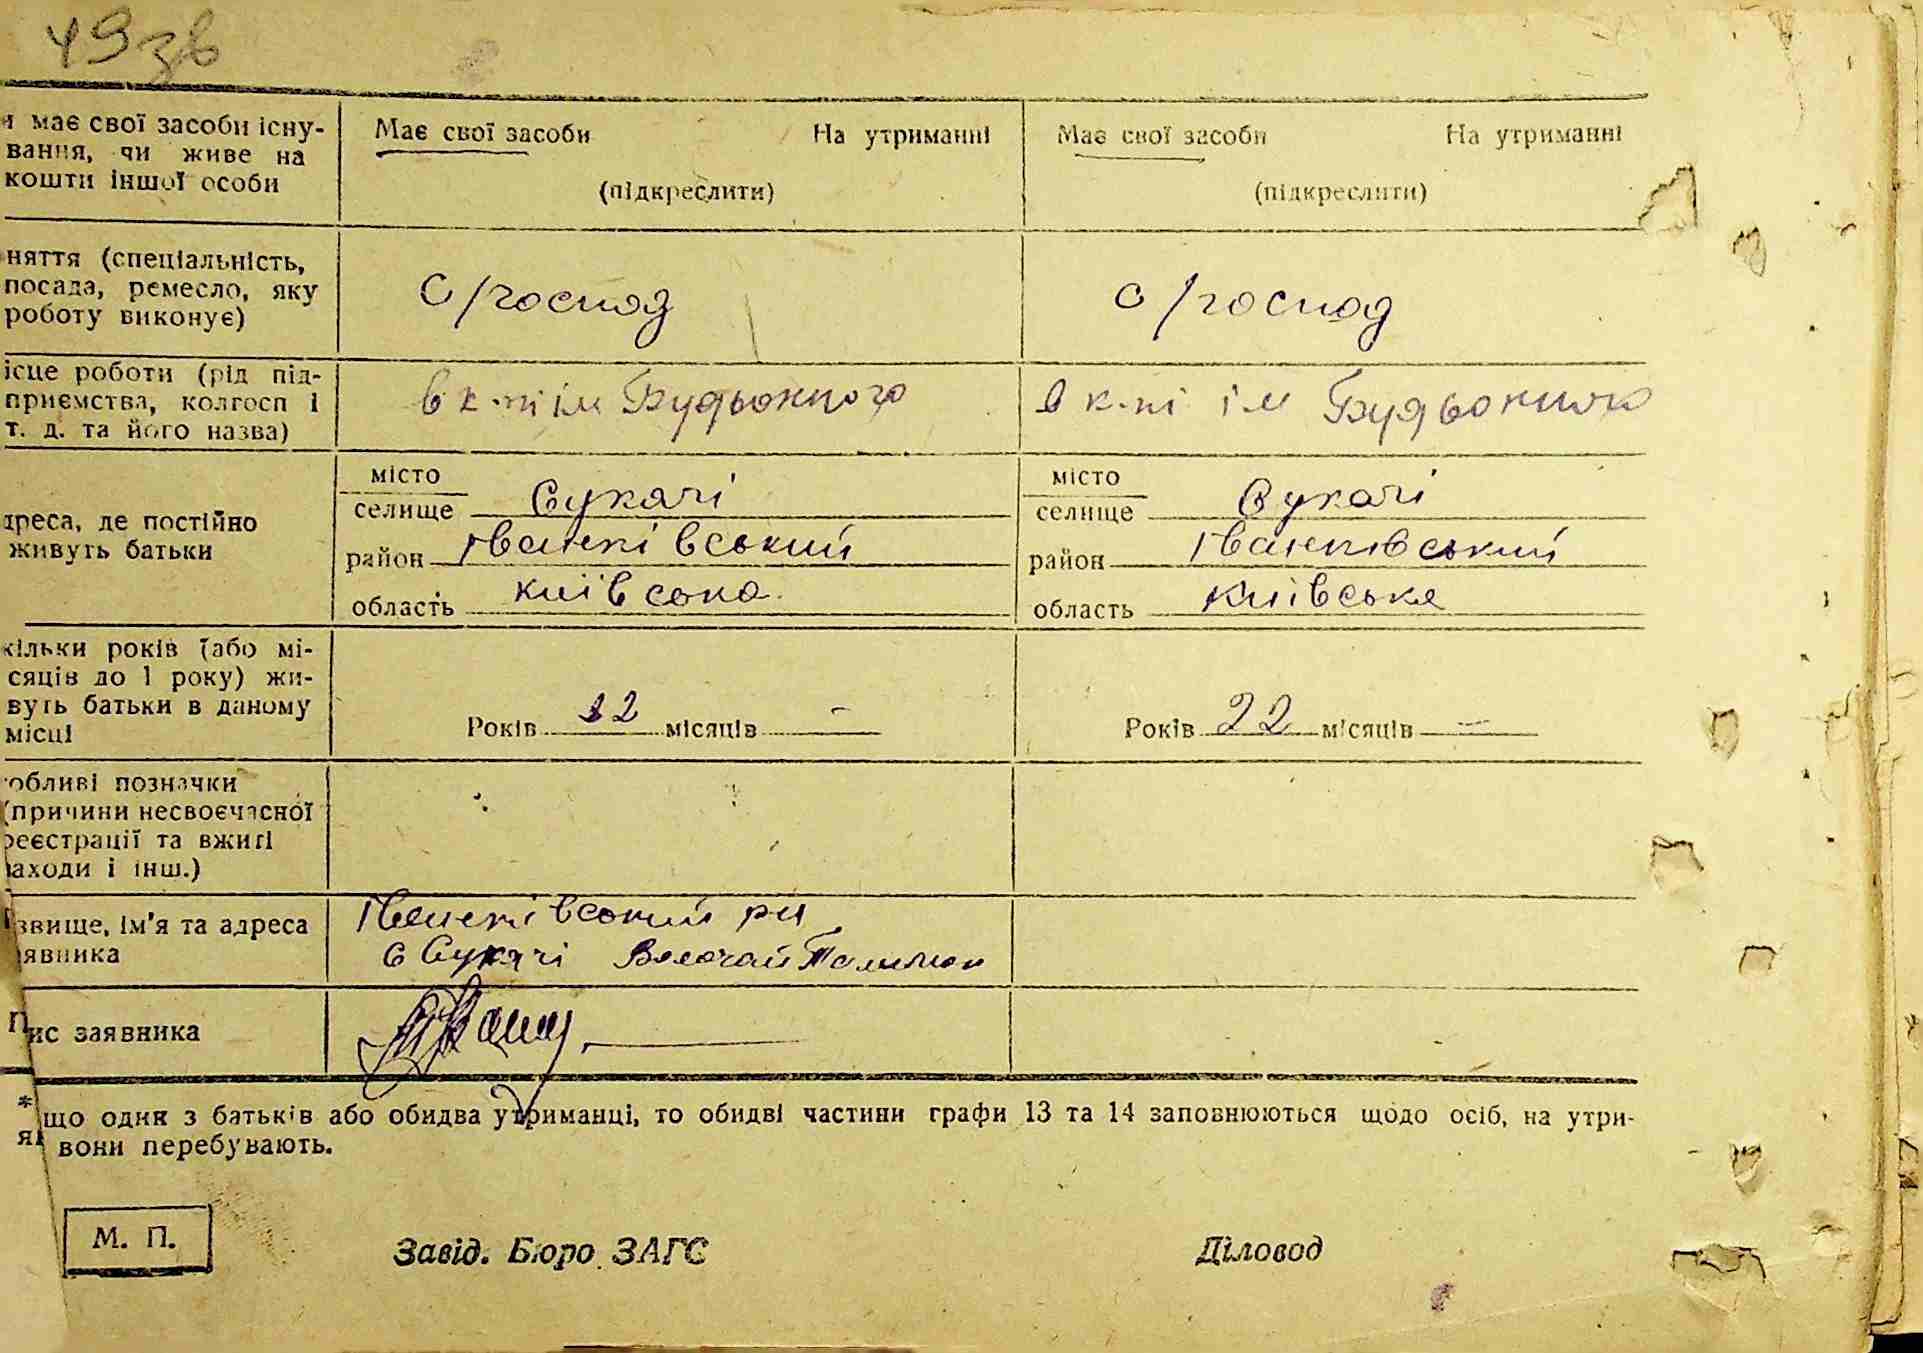 49 зв
має свої засоби існу-
вання, чи живе на
кошти іншої особи
Має свої засоби На утриманні
(підкреслити)
Має свої засоби На утриманні
(підкреслити)
няття (спеціальність,
посада, ремесло, яку
роботу виконує)
с/господ
с/господ
ісце роботи (рід під-
приємства, колгосп і
т. д. та його назва)
в к-пі ім Будьонного
в к-пі ім Будьонного
дреса, де постійно
живуть батьки
місто
селище Сукачі
район Іванківський
область київська
місто
селище Сукачі
район Іванківський
область київська
кільки років (або мі-
сяців до 1 року) жи-
вуть батьки в даному
місці
Років 22 місяців —
Років 22 місяців —
обливі позначки
(причини несвоєчасної
реєстрації та вжиті
заходи і інш.)
звище, ім'я та адреса
явника
Іванківський рн
с Сукачі
ис заявника
що один з батьків або обидва утриманці, то обидві частини графи 13 та 14 заповнюються щодо осіб, на утри-
вони перебувають.
М. П.
Завід. Бюро ЗАГС
Діловод